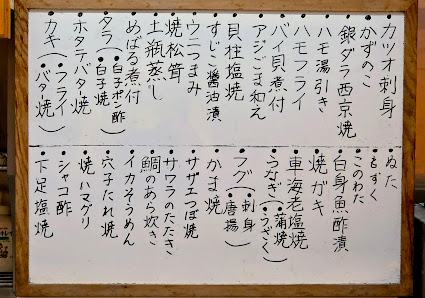 カツオ刺身
かずのこ
銀ダラ西京焼
ハモ湯引き
ハモフライ
バイ貝煮付
アジごま和え
貝柱塩焼
すじこ醤油漬
ウニつまみ
焼松茸
土瓶蒸し
めばる煮付
タラ(・白子ポン酢・白子焼)
ホタテバター焼
カキ(・フライ・バター焼)
ぬた
もずく
このわた
白身魚酢漬
焼ガキ
車海老塩焼
うなぎ(・蒲焼・うざく)
フグ(・刺身・唐揚)
かま焼
サザエつぼ焼
サワラのたたき
鯛のあら炊き
イカそうめん
穴子たれ焼
焼ハマグリ
シャコ酢
下足塩焼